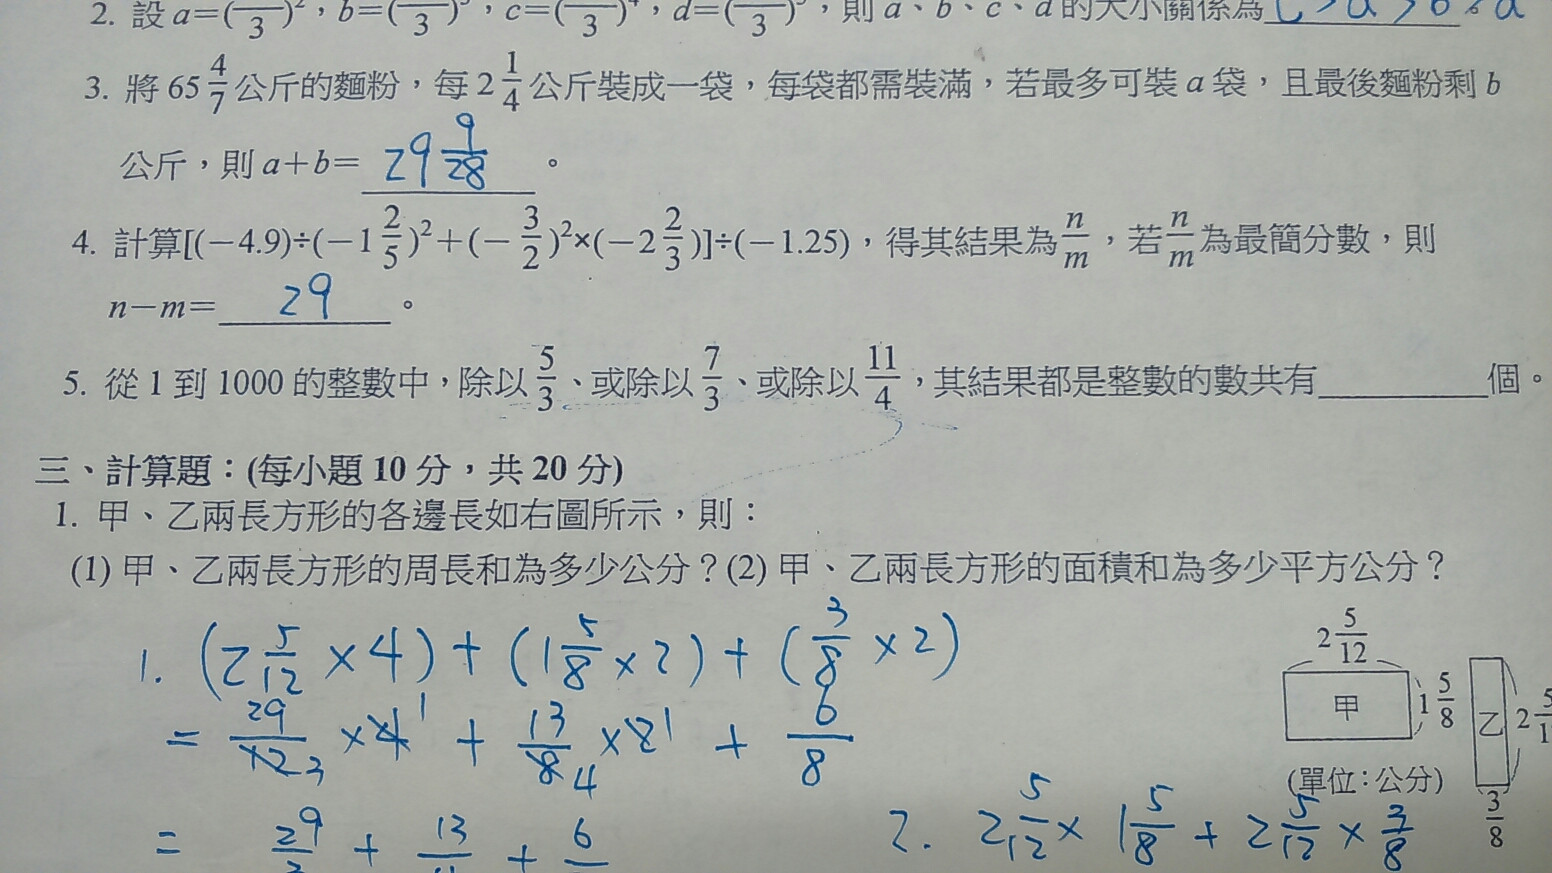 2. 設 a=(—/3)²，b=(—/3)³，c=(—/3)⁴，d=(—/3)⁵，則 a、b、c、d 的大小關係為
3. 將 65 4/7 公斤的麵粉，每 2 1/4 公斤裝成一袋，每袋都需裝滿，若最多可裝 a 袋，且最後麵粉剩 b
公斤，則 a+b= 29 9/28 。
4. 計算[(-4.9)÷(-1 2/5)²+(-3/2)²×(-2 2/3)]÷(-1.25)，得其結果為 n/m，若 n/m 為最簡分數，則
n-m= 29 。
5. 從 1 到 1000 的整數中，除以 5/3、或除以 7/3、或除以 11/4，其結果都是整數的數共有 個。
三、計算題：(每小題 10 分，共 20 分)
1. 甲、乙兩長方形的各邊長如右圖所示，則：
(1) 甲、乙兩長方形的周長和為多少公分？(2) 甲、乙兩長方形的面積和為多少平方公分？
1. (2 5/12 × 4) + (1 5/8 × 2) + (3/8 × 2)
= 29/12 3 × 4 1 + 13/8 4 × 2 1 + 6/8
= 29/3 + 13/4 + 6
2 5/12
甲
1 5/8
乙
2 5/1
(單位：公分)
3/8
2. 2 5/12 × 1 5/8 + 2 5/12 × 3/8